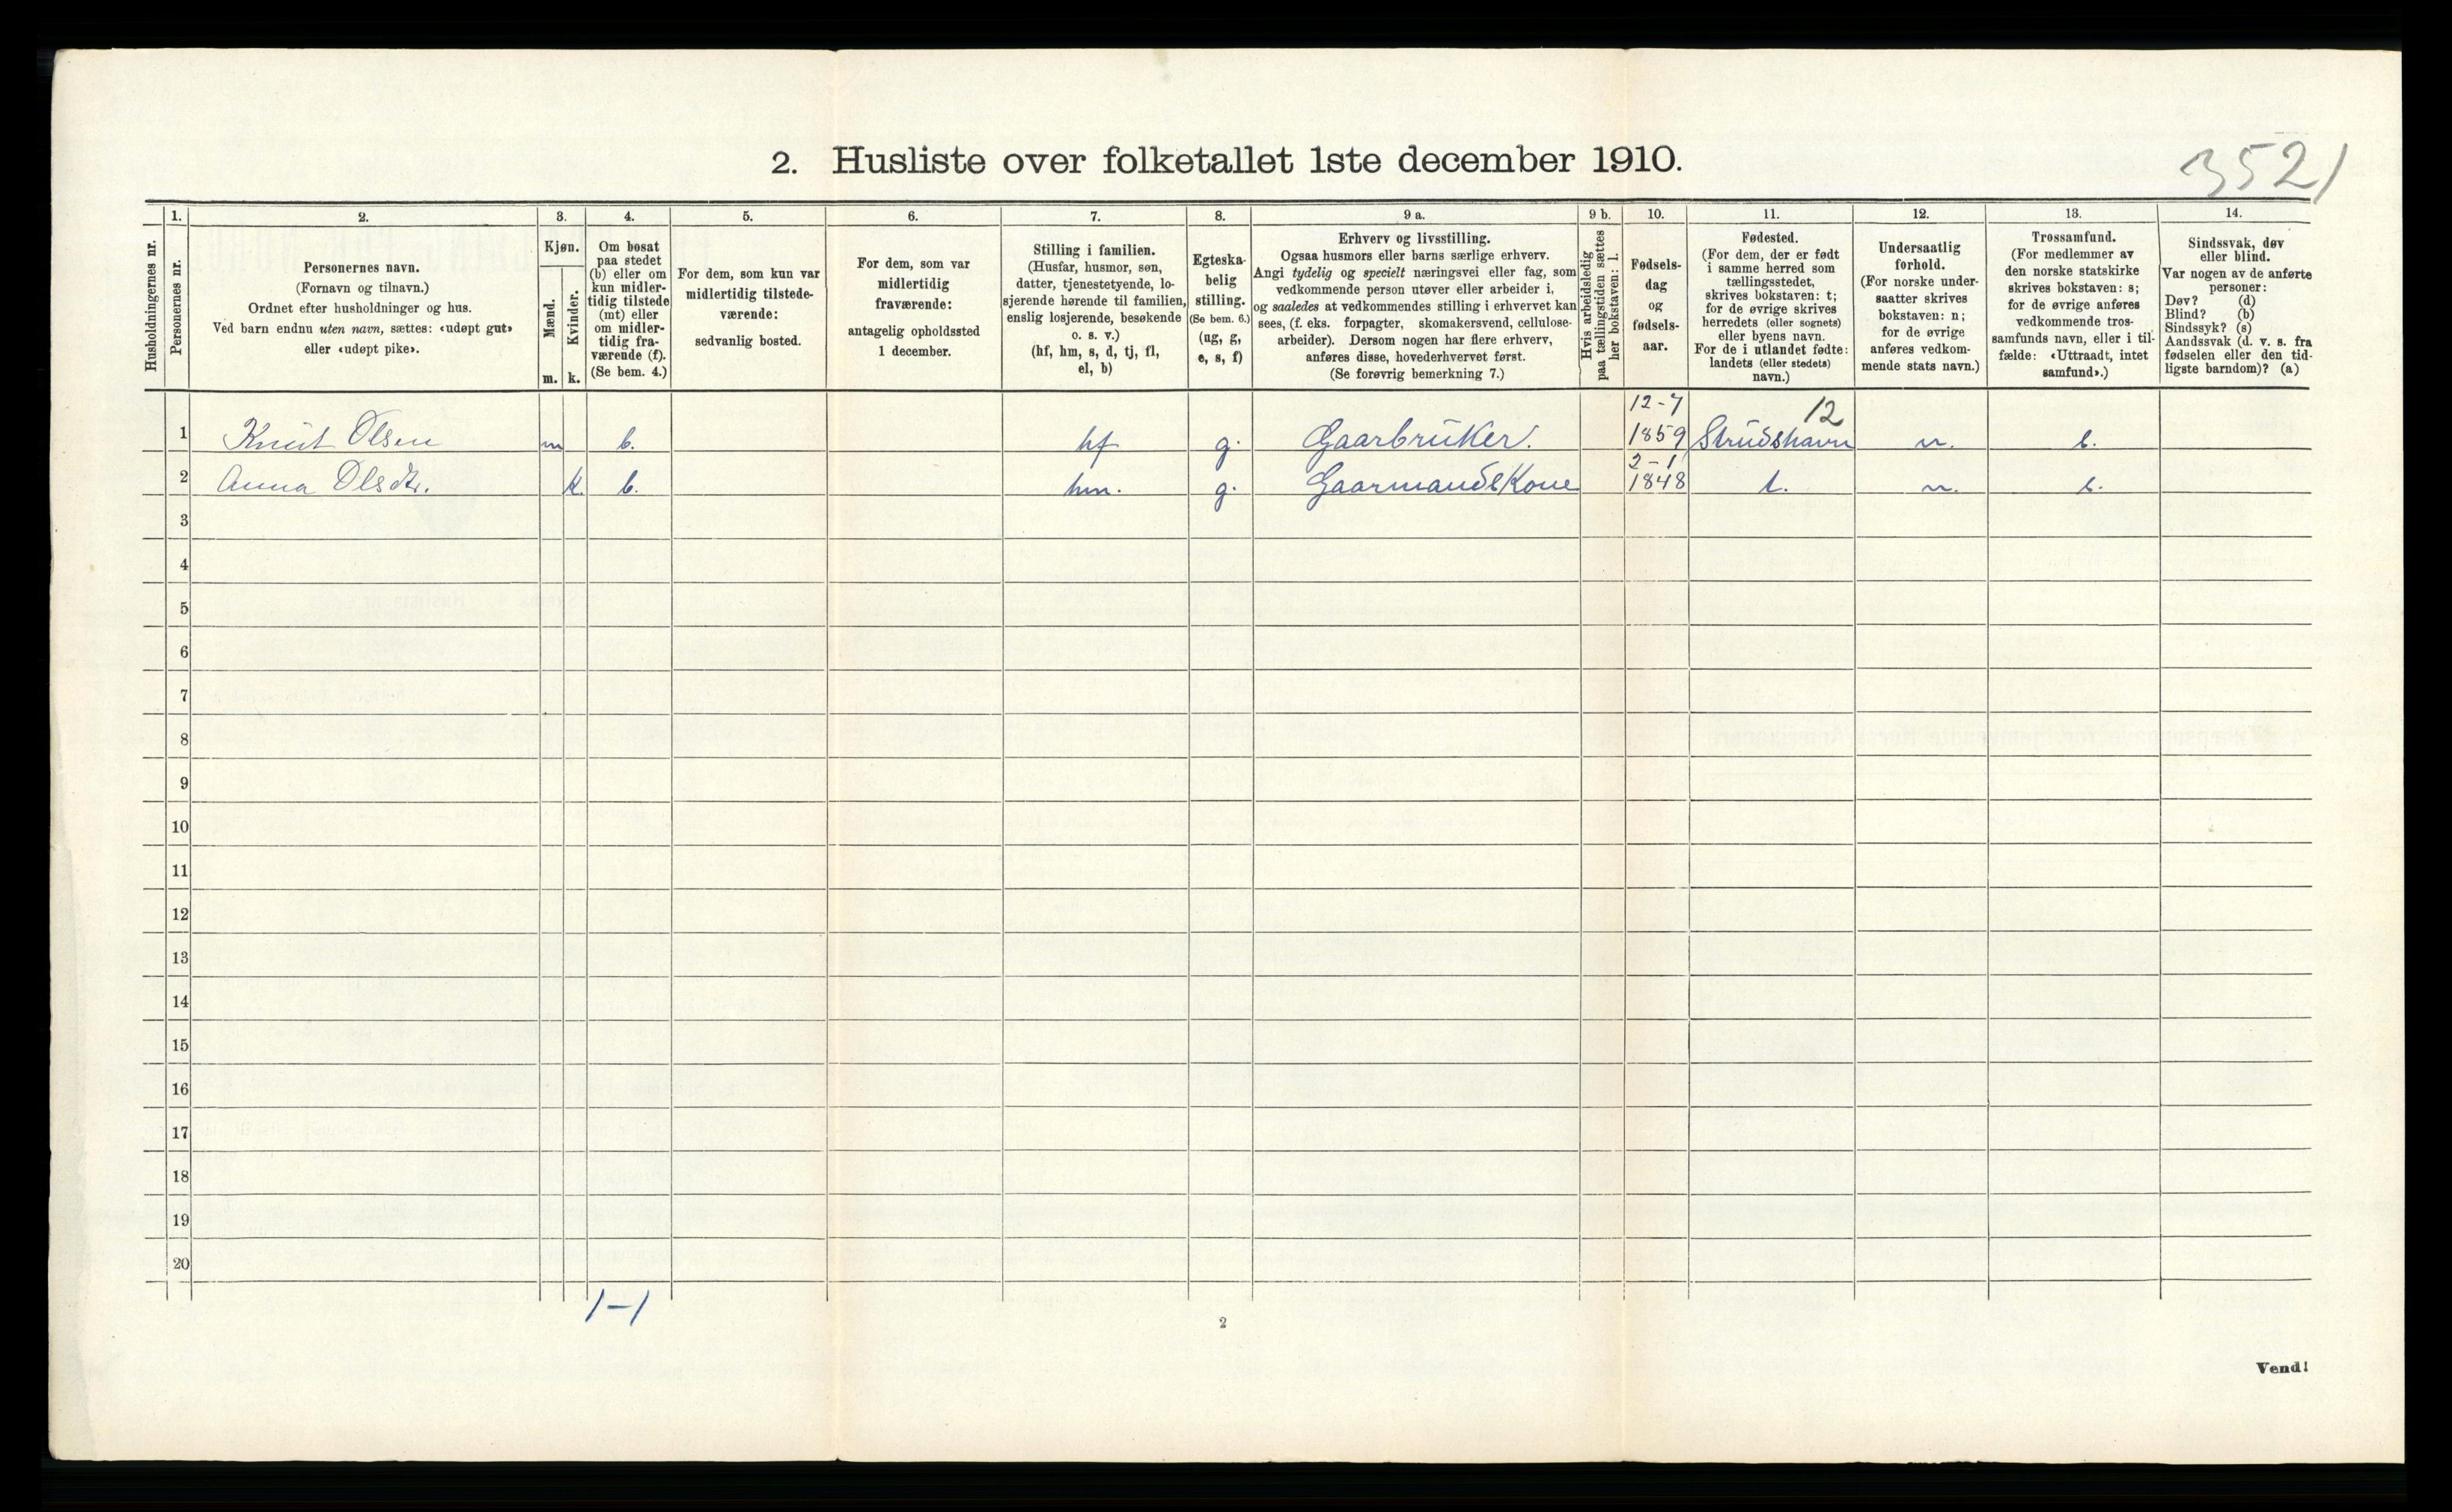 2. Husliste over folketallet 1ste december 1910.
3521
1. 2. 3. 4. 5. 6. 7. 8. 9 a. 9 b. 10. 11. 12. 13. 14.
Husholdningernes nr.
Personernes nr.
Personernes navn.
(Fornavn og tilnavn.)
Ordnet efter husholdninger og hus.
Ved barn endnu uten navn, sættes: «udøpt gut»
eller «udøpt pike».
Kjøn.
Mænd.
Kvinder.
m. k.
Om bosat
paa stedet
(b) eller om
kun midler-
tidig tilstede
(mt) eller
om midler-
tidig fra-
værende (f).
(Se bem. 4.)
For dem, som kun var
midlertidig tilstede-
værende:
sedvanlig bosted.
For dem, som var
midlertidig
fraværende:
antagelig opholdssted
1 december.
Stilling i familien.
(Husfar, husmor, søn,
datter, tjenestetyende, lo-
sjerende hørende til familien,
enslig losjerende, besøkende
o. s. v.)
(hf, hm, s, d, tj, fl,
el, b)
Egteska-
belig
stilling.
(Se bem. 6.)
(ug, g,
e, s, f)
Erhverv og livsstilling.
Ogsaa husmors eller barns særlige erhverv.
Angi tydelig og specielt næringsvei eller fag, som
vedkommende person utøver eller arbeider i,
og saaledes at vedkommendes stilling i erhvervet kan
sees, (f. eks. forpagter, skomakersvend, cellulose-
arbeider). Dersom nogen har flere erhverv,
anføres disse, hovederhvervet først.
(Se forøvrig bemerkning 7.)
Hvis arbeidsledig
paa tællingstiden sættes
her bokstaven: l.
Fødsels-
dag
og
fødsels-
aar.
Fødested.
(For dem, der er født
i samme herred som
tællingsstedet,
skrives bokstaven: t;
for de øvrige skrives
herredets (eller sognets)
eller byens navn.
For de i utlandet fødte:
landets (eller stedets)
navn.)
Undersaatlig
forhold.
(For norske under-
saatter skrives
bokstaven: n;
for de øvrige
anføres vedkom-
mende stats navn.)
Trossamfund.
(For medlemmer av
den norske statskirke
skrives bokstaven: s;
for de øvrige anføres
vedkommende tros-
samfunds navn, eller i til-
fælde: «Uttraadt, intet
samfund».)
Sindssvak, døv
eller blind.
Var nogen av de anførte
personer:
Døv? (d)
Blind? (b)
Sindssyk? (s)
Aandssvak (d. v. s. fra
fødselen eller den tid-
ligste barndom)? (a)
12-7 12
1 Knut Olsen m b. hf g. Gaarbruker. 1859 Strudshavn n. s.
2-1
2 Anna Olsdtr. k. b. hm. g. GaarmandsKone 1848 t. n. s.
3
4
5
6
7
8
9
10
11
12
13
14
15
16
17
18
19
20
1-1
2
Vend!